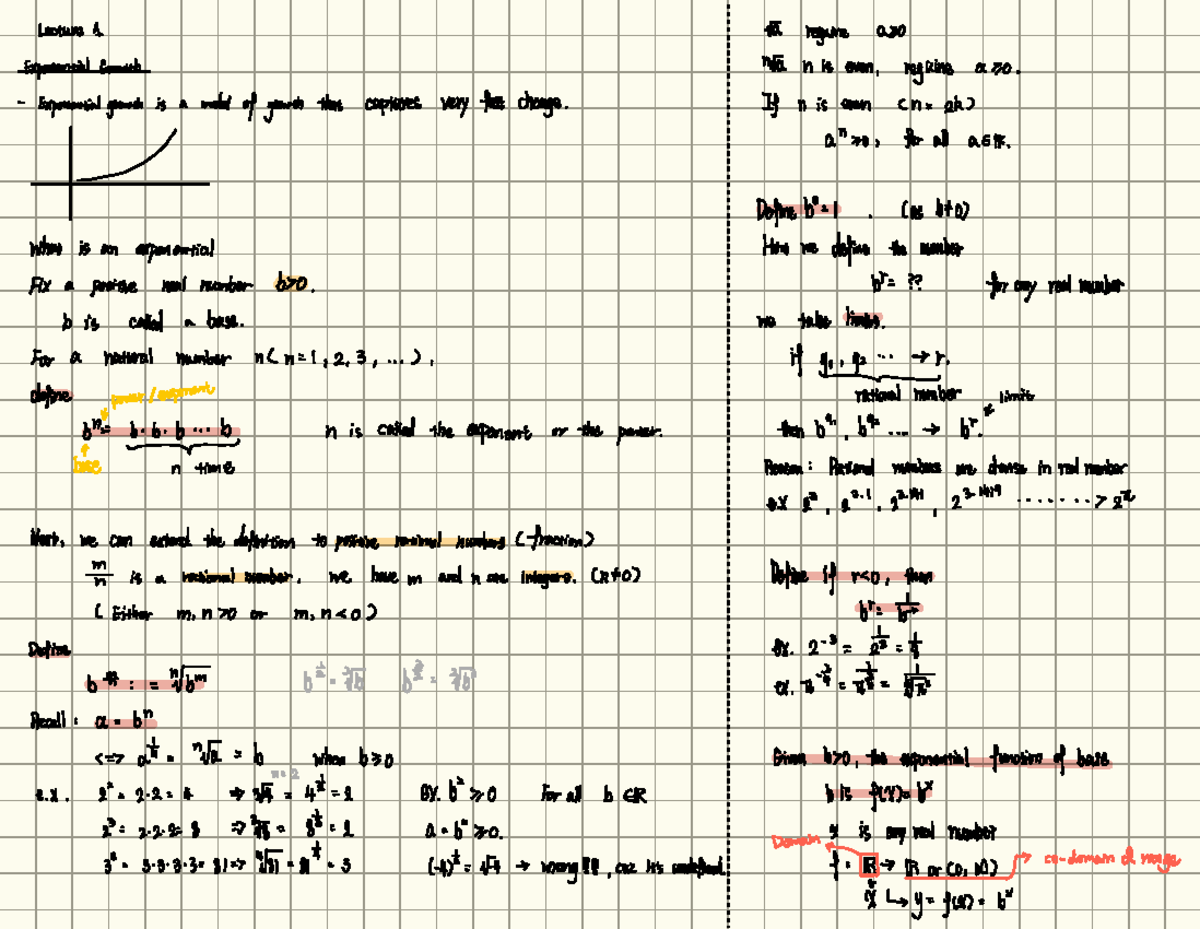 Lecture 1
Exponential Growth
- Exponential growth is a model of growth that captures very fast change.
What is an exponential
Fix a positive real number b>0.
b is called a base.
For a natural number n(n=1,2,3,...),
define
power/exponent
bⁿ= b·b·b ··· b
n is called the exponent or the power.
base
n time
Next, we can extend the definition to positive rational numbers (fraction)
m/n is a rational number, we have m and n are integers. (n≠0)
(Either m,n>0 or m,n<0)
Define
b^(m/n) := ⁿ√b^m
Recall: a = bⁿ
<=> a^(1/n) = ⁿ√a = b when b≥0
n=2
e.x. 2² = 2·2 = 4 => ²√4 = 4^(1/2) = 2
EX. b² ≥0 For all b∈R
2³ = 2·2·2= 8 => ³√8 = 8^(1/3) = 2
a = b² ≥0.
3⁴ = 3·3·3·3= 81 => ⁴√81 = 81^(1/4) = 3
→ wrong !!!, coz it's undefined
√a require a≥0
ⁿ√a n is even, require a≥0.
If n is even (n= 2k)
aⁿ≥0, for all a∈R.
Define b⁰=1. (as b≠0)
How we define the number
b^r= ?? for any real number
we take limits.
if q₁, q₂ ··· → r.
rational number
limits
then b^q₁, b^q₂ ···· → b^r.
Reason: Rational numbers are dense in real number
ex 2³, 2^3.1, 2^3.141, 2^3.1419 ·······> 2^π
Define if r<0, then
EX. 2⁻³ =
Given b>0, the exponential function of base
b is f(x)=b^x
x is any real number
Domain
f = R → R or (0, ∞)
→ co-domain & range
x ↳ y = f(x) = b^x